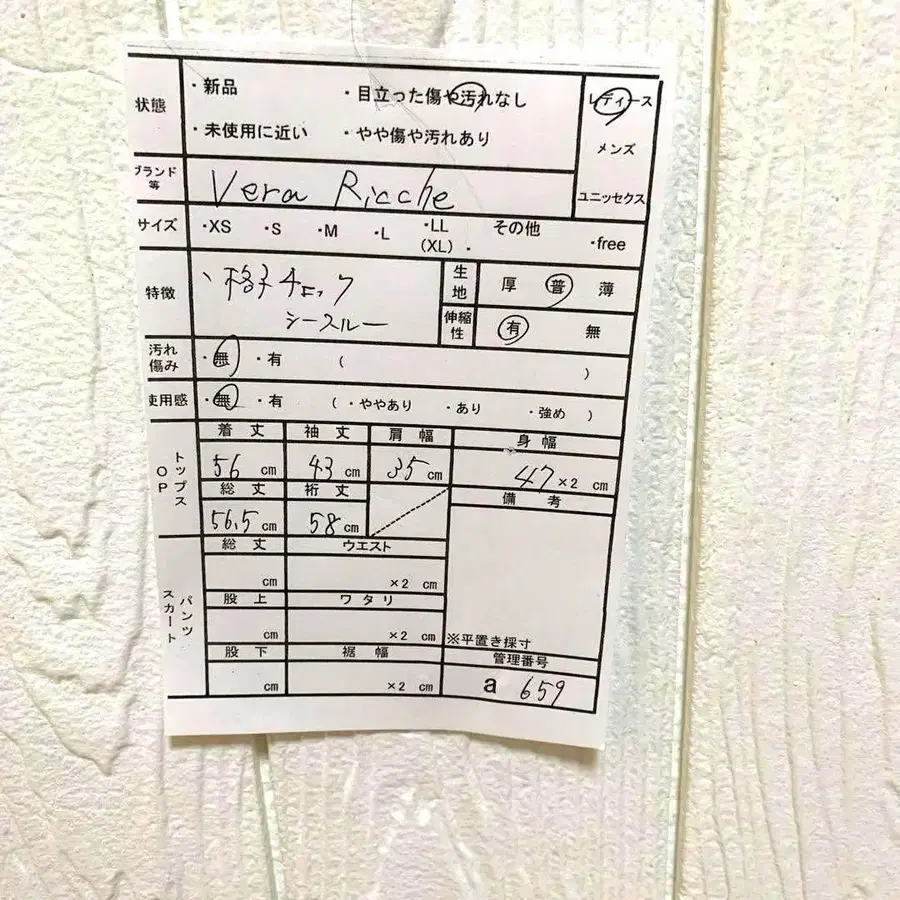 状態
・新品
・目立った傷や汚れなし
・未使用に近い
・やや傷や汚れあり
レディース
メンズ
ユニッセクス
ブランド等
Vera Ricche
サイズ
・XS ・S ・M ・L ・LL (XL) ・ その他 ・free
特徴
、格子チェック
シースルー
生地
厚 普 薄
伸縮性
有 無
汚れ傷み
・無 ・有 ( )
使用感
・無 ・有 ( ・ややあり ・あり ・強め )
トップス OP
着丈 袖丈 肩幅 身幅
56 cm 43 cm 35 cm 47 ×2 cm
総丈 裄丈 備考
56.5 cm 58 cm
パンツ スカート
総丈 ウエスト
cm ×2 cm
股上 ワタリ
cm ×2 cm
※平置き採寸
股下 裾幅
管理番号
cm ×2 cm
a 659